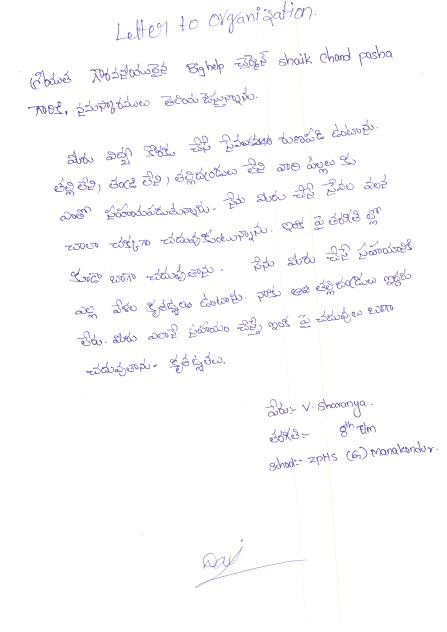 Letter to organization.
శ్రీయుత గౌరవనీయులైన Bighelp చైర్మైన్ shaik chand pasha
గారికి, నమస్కారములు తెలియజేస్తున్నాను.
మీరు విద్య కొరకు చేసే సేవలకు రుణపడి ఉంటాను.
తల్లి లేని, తండ్రి లేని, తల్లిదండ్రులు లేని వారి పిల్లలకు
ఎంతో సహాయపడుతున్నారు. నేను మీరు చేసే సేవల వలన
చాలా చక్కగా చదువుకుంటున్నాను. ఇంక పై తరగతి ల్లో
కూడా బాగా చదువుతాను. నేను మీరు చేసే సహాయానికి
ఎల్ల వేళల కృతజ్ఞలు ఉంటాను. నాకు తల్లిదండ్రులు ఇద్దరు
లేరు. మీరు ఎలానే సహాయం చేస్తే ఇంక పై చదువులు బాగా
చదువుతాను. కృతజ్ఞతలు.
పేరు:- V. Sharanya.
తరగతి:- 8th E/m
School:- ZPHS (G) Manakondur.